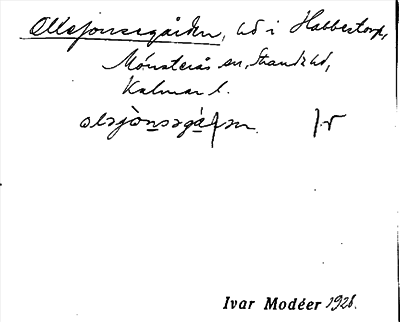 Ollejonsegården, hd i Habbestorp,
Mönsterås sn, Stranda hd,
Kalmar l.
olsjònsgá
Ivar Modéer 1928.